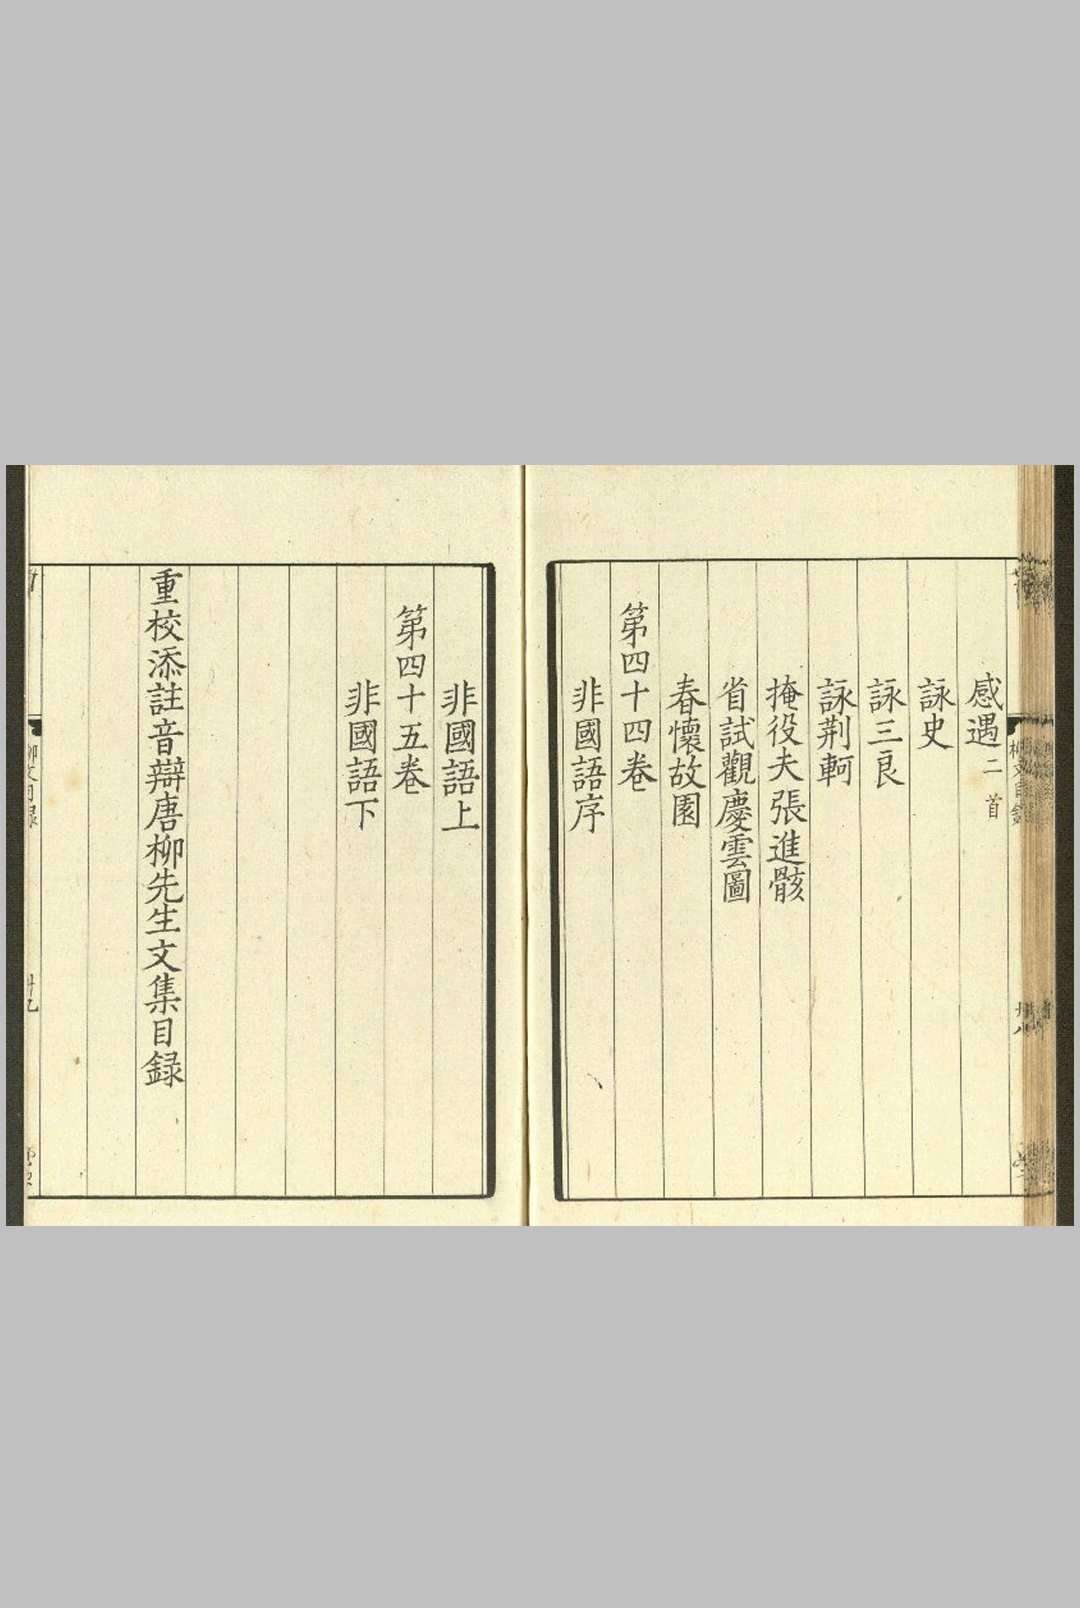 感遇二首
詠史
詠三良
詠荆軻
掩役夫張進骸
省試觀慶雲圖
春懷故園
第四十四卷
非國語序
非國語上
第四十五卷
非國語下
重校添註音辯唐柳先生文集目録